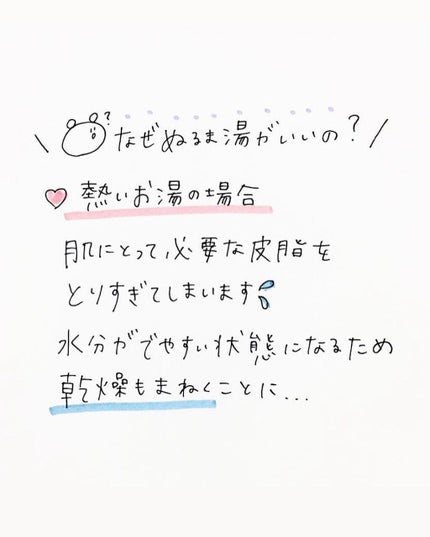 \ ? なぜぬるま湯がいいの? /
熱いお湯の場合
肌にとって必要な皮脂を
とりすぎてしまいます
水分がでやすい状態になるため
乾燥もまねくことに...